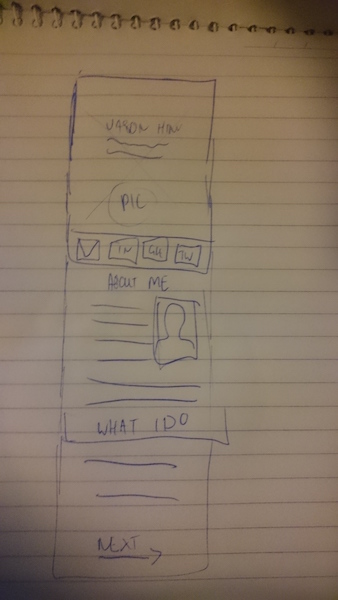 JASON
PIC
IN GH TW
ABOUT ME
WHAT I DO
NEXT